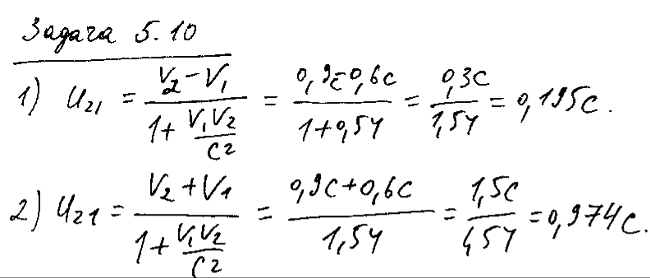 Задача 5.10
1) U₂₁ = (V₂ - V₁) / (1 + V₁V₂/c²) = (0,9c - 0,6c) / (1 + 0,54) = 0,3c / 1,54 = 0,195c.
2) U₂₁ = (V₂ + V₁) / (1 + V₁V₂/c²) = (0,9c + 0,6c) / 1,54 = 1,5c / 1,54 = 0,974c.